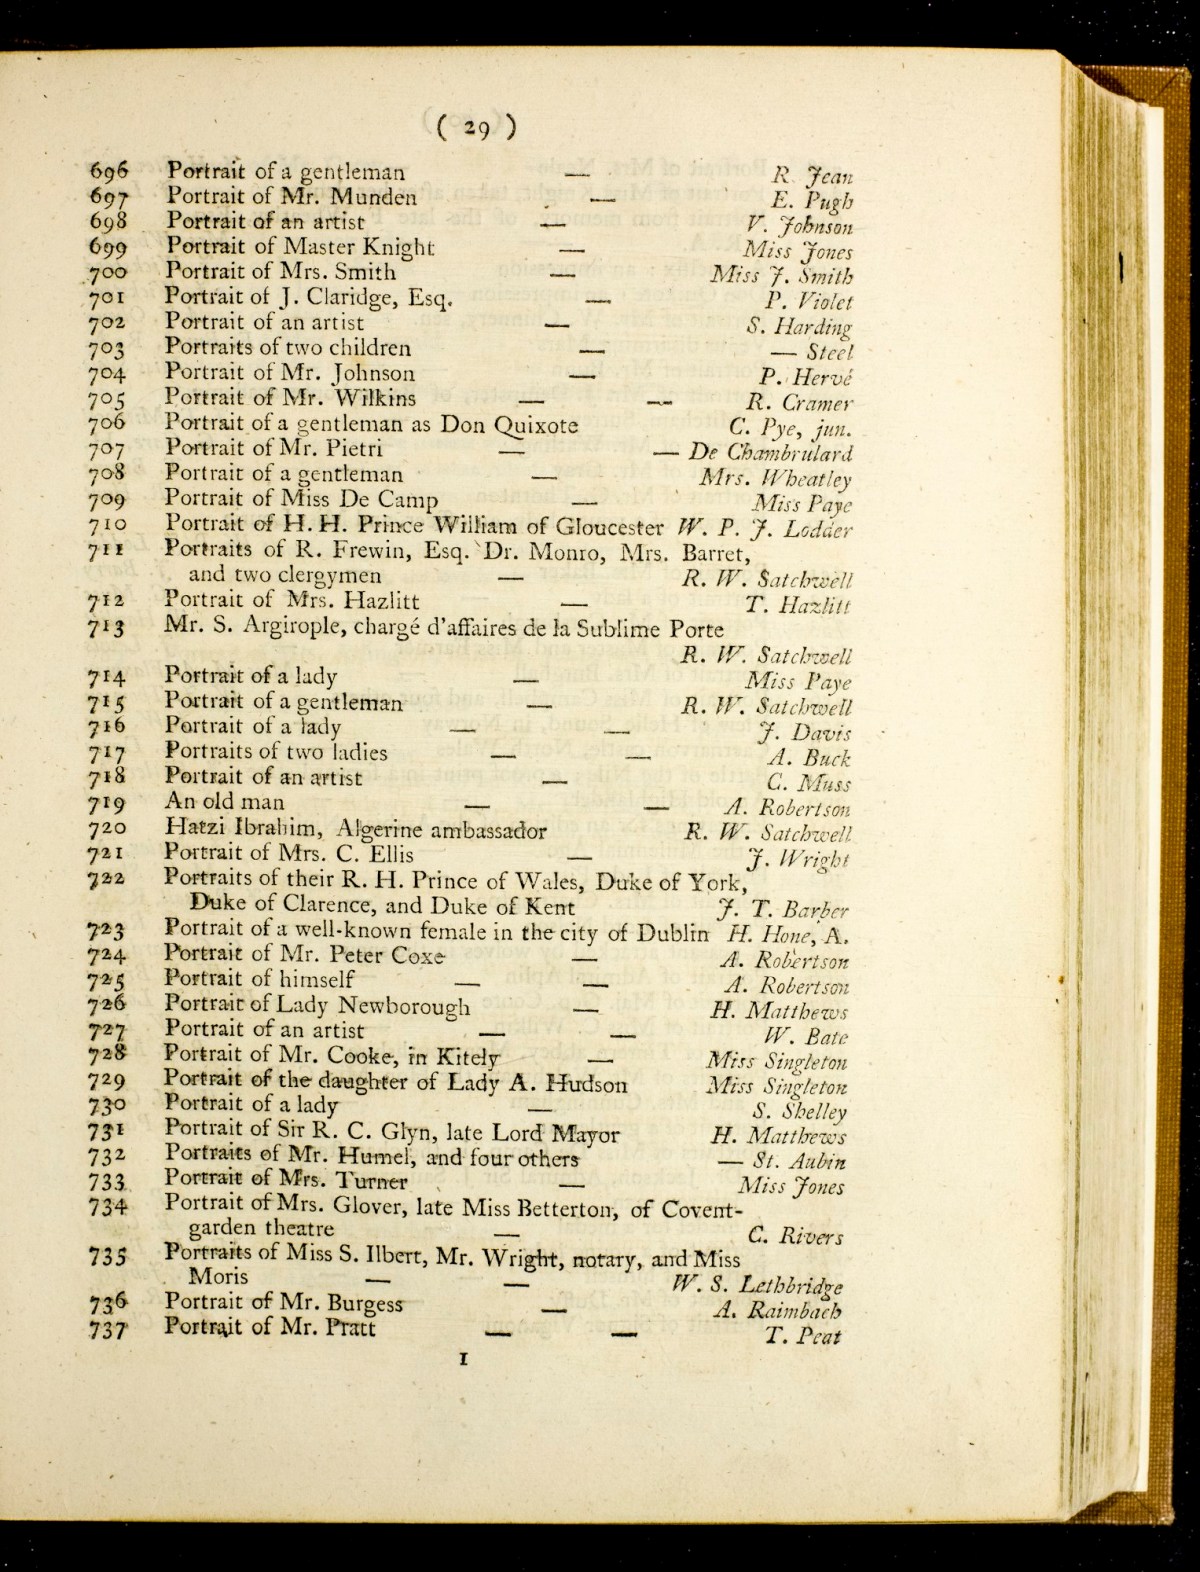 ( 29 )
696 Portrait of a gentleman — R. Jean
697 Portrait of Mr. Munden — E. Pugh
698 Portrait of an artist — V. Johnson
699 Portrait of Master Knight — Miss Jones
700 Portrait of Mrs. Smith — Miss J. Smith
701 Portrait of J. Claridge, Esq. — P. Violet
702 Portrait of an artist — S. Harding
703 Portraits of two children — — Steel
704 Portrait of Mr. Johnson — P. Hervé
705 Portrait of Mr. Wilkins — — R. Cramer
706 Portrait of a gentleman as Don Quixote C. Pye, jun.
707 Portrait of Mr. Pietri — — De Chambrulard
708 Portrait of a gentleman — Mrs. Wheatley
709 Portrait of Miss De Camp — Miss Paye
710 Portrait of H. H. Prince William of Gloucester W. P. J. Lodder
711 Portraits of R. Frewin, Esq. Dr. Monro, Mrs. Barret,
and two clergymen — R. W. Satchwell
712 Portrait of Mrs. Hazlitt — T. Hazlitt
713 Mr. S. Argirople, chargé d'affaires de la Sublime Porte
R. W. Satchwell
714 Portrait of a lady — Miss Paye
715 Portrait of a gentleman — R. W. Satchwell
716 Portrait of a lady — — J. Davis
717 Portraits of two ladies — — A. Buck
718 Portrait of an artist — C. Muss
719 An old man — — A. Robertson
720 Hatzi Ibrahim, Algerine ambassador R. W. Satchwell
721 Portrait of Mrs. C. Ellis — J. Wright
722 Portraits of their R. H. Prince of Wales, Duke of York,
Duke of Clarence, and Duke of Kent J. T. Barber
723 Portrait of a well-known female in the city of Dublin H. Hone, A.
724 Portrait of Mr. Peter Coxe — A. Robertson
725 Portrait of himself — — A. Robertson
726 Portrait of Lady Newborough — H. Matthews
727 Portrait of an artist — — W. Bate
728 Portrait of Mr. Cooke, in Kitely — Miss Singleton
729 Portrait of the daughter of Lady A. Hudson Miss Singleton
730 Portrait of a lady — S. Shelley
731 Portrait of Sir R. C. Glyn, late Lord Mayor H. Matthews
732 Portraits of Mr. Humel, and four others — St. Aubin
733 Portrait of Mrs. Turner — Miss Jones
734 Portrait of Mrs. Glover, late Miss Betterton, of Covent-
garden theatre — C. Rivers
735 Portraits of Miss S. Ilbert, Mr. Wright, notary, and Miss
Moris — — W. S. Lethbridge
736 Portrait of Mr. Burgess — A. Raimbach
737 Portrait of Mr. Pratt — — T. Peat
I